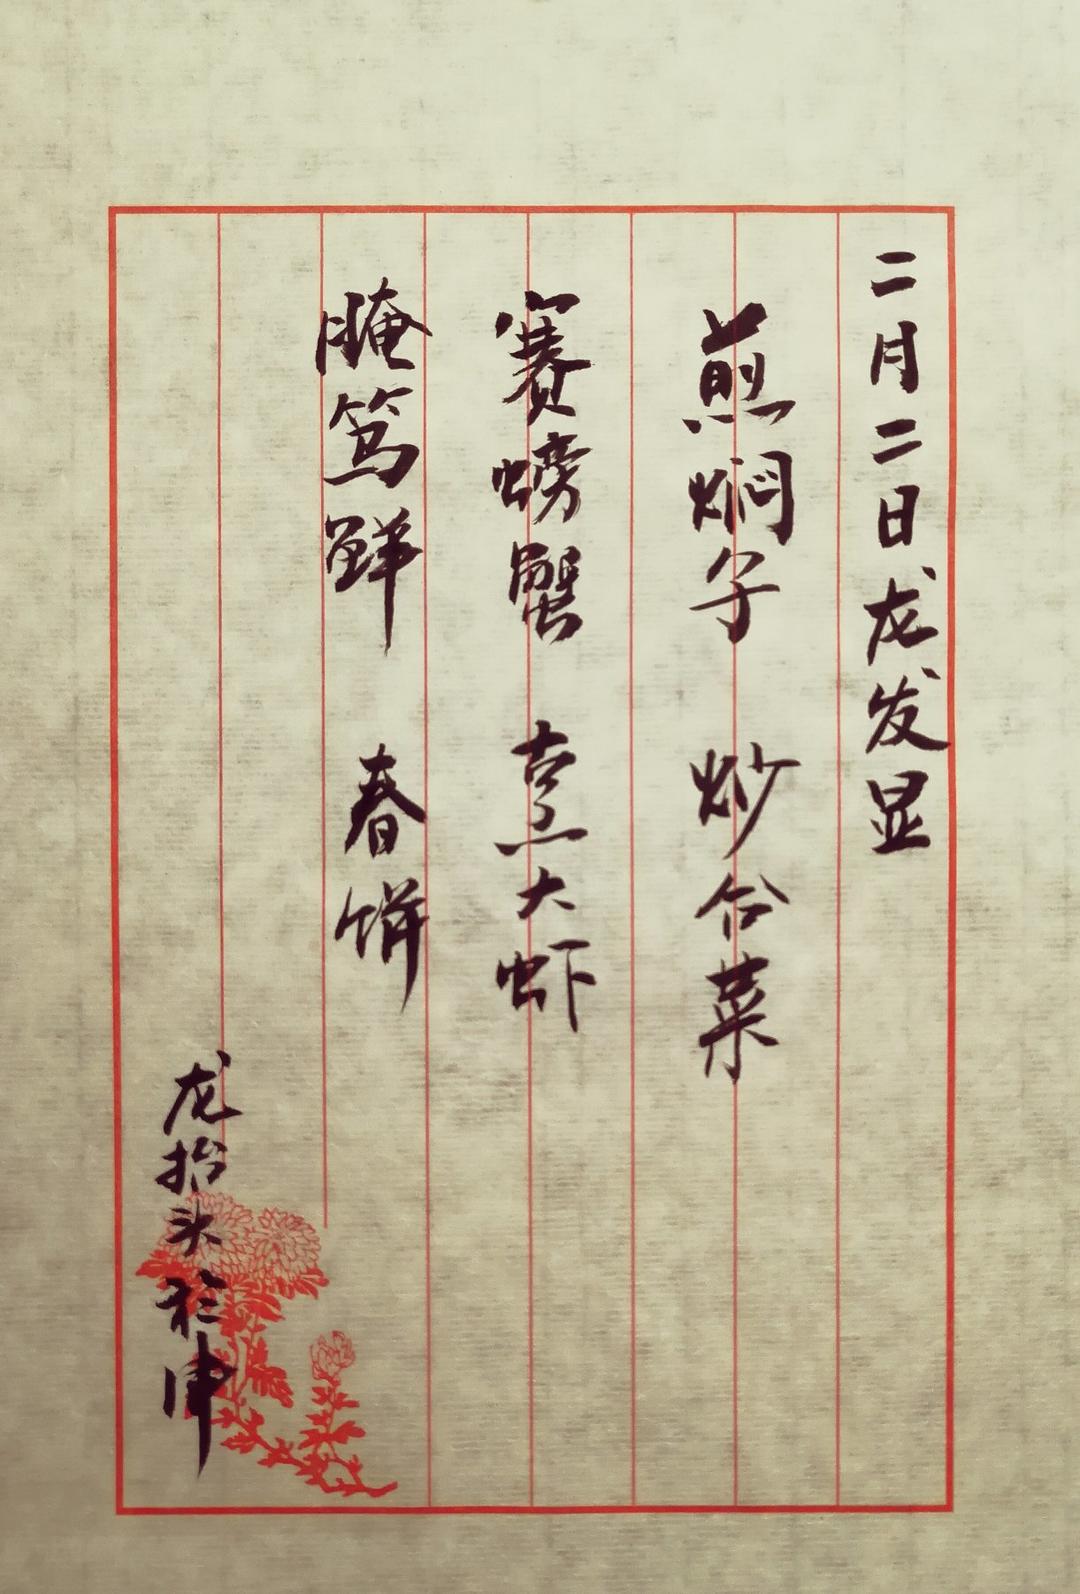 二月二日龙发显
煎焖子 炒合菜
赛螃蟹 烹大虾
腌笃鲜 春饼
龙抬头 於申